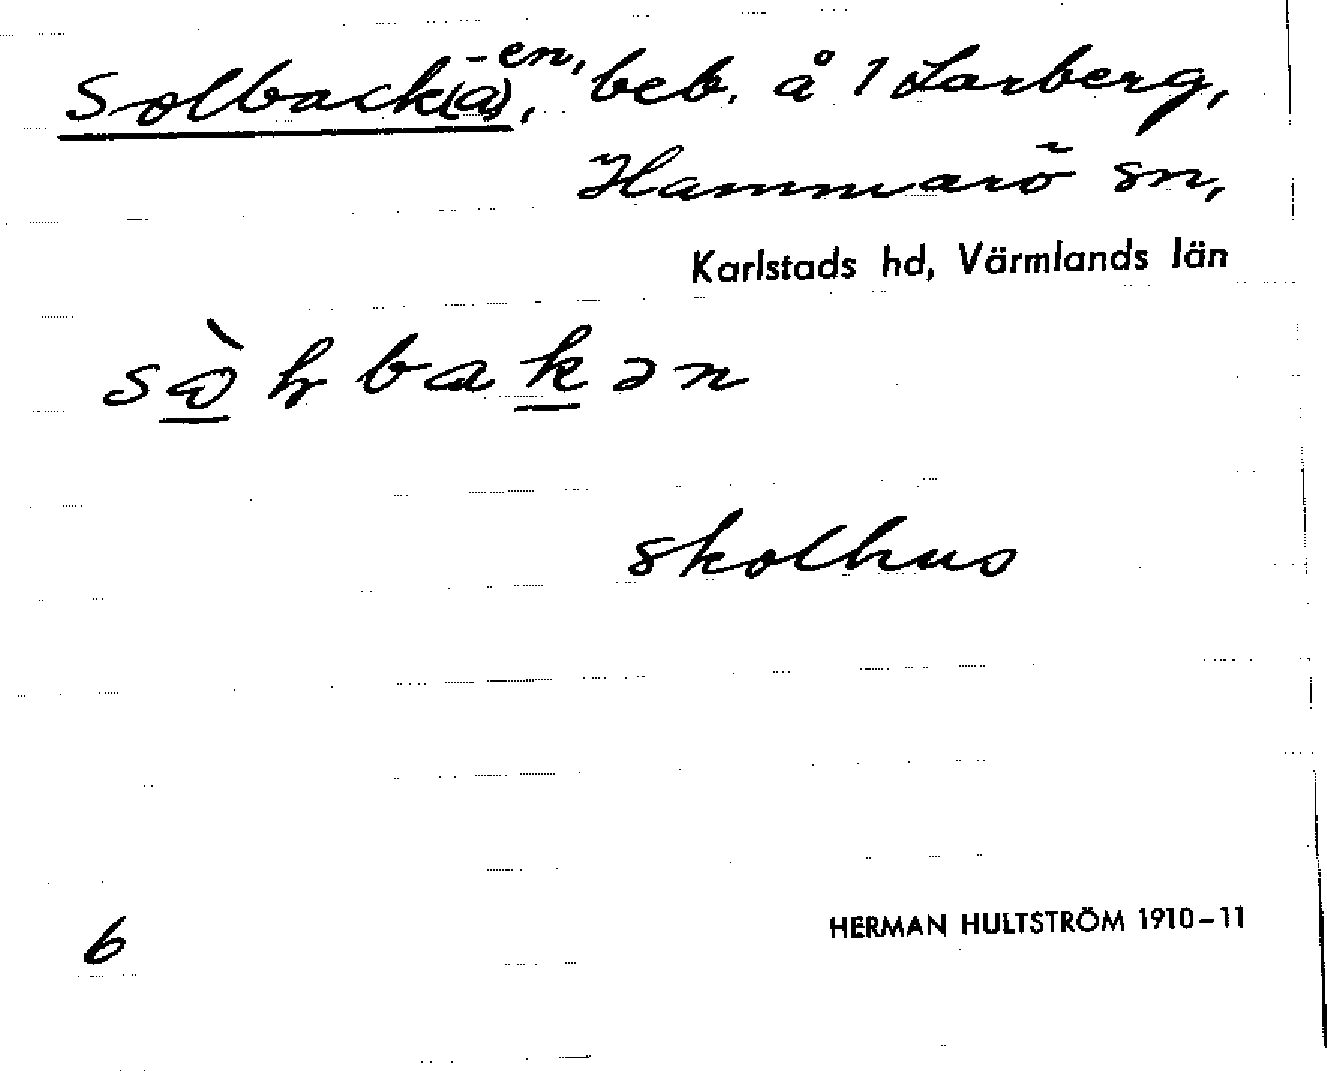 Solback(a), -en, beb. å 1 Larberg,
Hammarö sn,
Karlstads hd, Värmlands län
skolhus
6
HERMAN HULTSTRÖM 1910-11